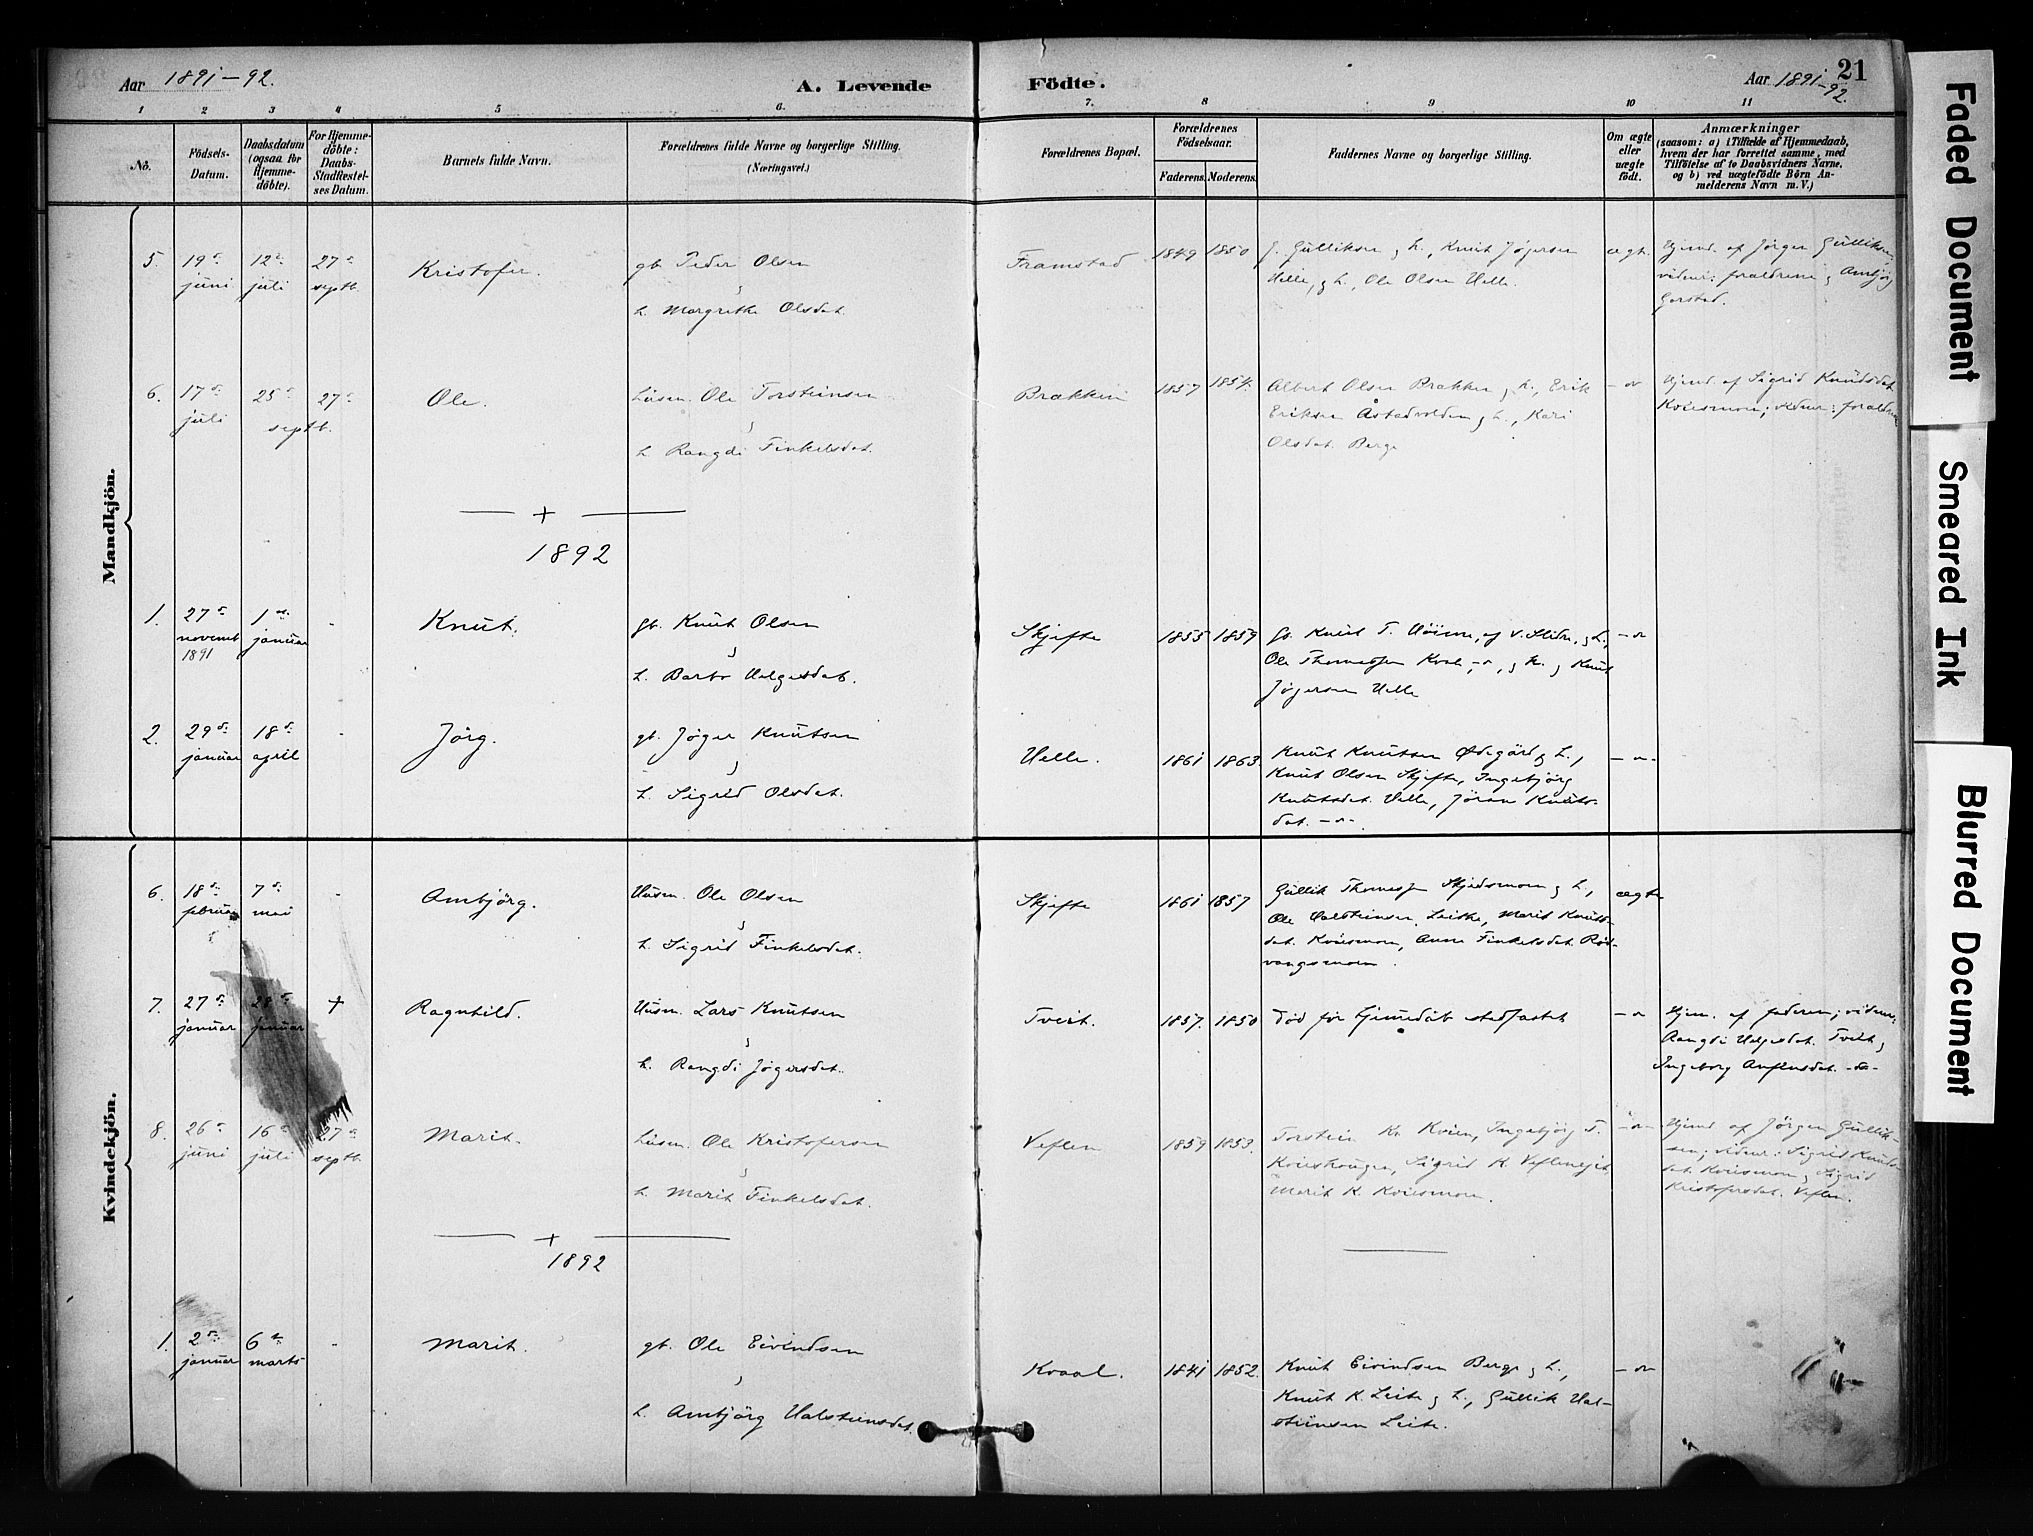 Aar 1891-92.
A. Levende
Födte.
Aar 1891-92.
21
1 2 3 4 5 6. 7. 8 9 10 11
Nô.
Födsels-
Datum.
Daabsdatum
(ogsaa for
Hjemme-
döbte).
For Hjemme-
döbte:
Daabs-
Stadfæstel-
ses Datum.
Barnets fulde Navn.
Forældrenes fulde Navne og borgerlige Stilling.
(Næringsvei.)
Forældrenes Bopæl.
Forældrenes
Födselsaar.
Faderens. Moderens.
Faddernes Navne og borgerlige Stilling.
Om ægte
eller
uægte
födt.
Anmærkninger
(saasom: a) i Tilfælde af Hjemmedaab,
hvem der har forrettet samme, med
Tilföielse af to Daabsvidners Navne,
og b) ved uægtefödte Börn An-
melderens Navn m. V.)
Mandkjön.
5. 19de juni 12te juli 27de septb. Kristofer.
gb. Peder Olsen
h. Margrethe Olsdat.
Framstad 1849 1850
J. Gulliksen & h., Knut Jøgersen
Helle, & h., Ole Olsen Helle.
ægt.
Hjemd. af Jörgen Gulliksen,
vidner: forældrene & Ambjörg
6. 17de juli 25de 27de septb. Ole.
Husm. Ole Torsteinsen
h. Rangdi Finkelsdat.
Brækken 1857 1854.
Albert Olsen Brækken & h., Erik
Eriksen Åstadvolden & h., Kari
Olsdat. Berge
Hjemd. af Sigrid Knudsdat.
Kviesmoen; vidner: forældrene
+
1892
1. 27de novemb 1891 1ste januar - Knut.
gb. Knut Olsen
h. Barbr Helgesdat.
Skjefte 1855 1859
Gb. Knut T. af V. Slidre, & h.,
Ole Thomessen Kval & h. & Knut
Jøgersen Helle
2. 29de januar 18de april - Jörg.
gb. Jøger Knutsen
h. Sigrid Olsdat.
Helle. 1861 1863.
Knut Knutsen Ødegård & h.,
Knut Olsen Skjefte, Ingebjörg
Knutsdat. Helle, Jöran Knuts-
dat.
Kvindekjön.
6. 18de februar 7de mai - Ambjörg.
Husm. Ole Olsen
h. Sigrid Finkelsdat.
Skjefte 1861 1857
Gullik Thomessen Skjedsmoen & h.,
Ole Halsteinsen Leite, Marit Knuts-
dat. Kviesmoen, Anne Finkelsdat. Röd-
vangsmoen.
ægte
7. 27de januar 28de januar + Ragnhild.
Husm. Lars Knutsen
h. Rangdi Jøgersdat.
Tveit. 1857. 1850
död før hjemedåb stadfæstet
Hjem. af faderen; vidner:
Rangdi Helgesdat. Tveit &
Ingeborg Anfinsdat.
8. 26de juni 16de juli 27de septb. Marit.
Husm. Ole Kristofersen
h. Marit Finkelsdat.
Veflen 1859 1853.
Torstein Kr. Kvien, Ingebjörg T.
Kviehougen, Sigrid K.
Marit K. Kviesmoen.
Hjemd. af Jörgen Gullik-
sen; vidner: Sigrid Knuts-
dat. Kviesmoen, Sigrid
Kristofersdat. Veflen.
+
1892
1. 2den januar 6te marts - Marit.
gb. Ole Eivindsen
h. Ambjörg Halsteinsdat.
Kvaal. 1841 1852.
Knut Eivindsen Berge & h.,
Knut K. Leite & h., Gullik Hal-
steinsen Leite.
Faded Document
Smeared Ink
Blurred Document